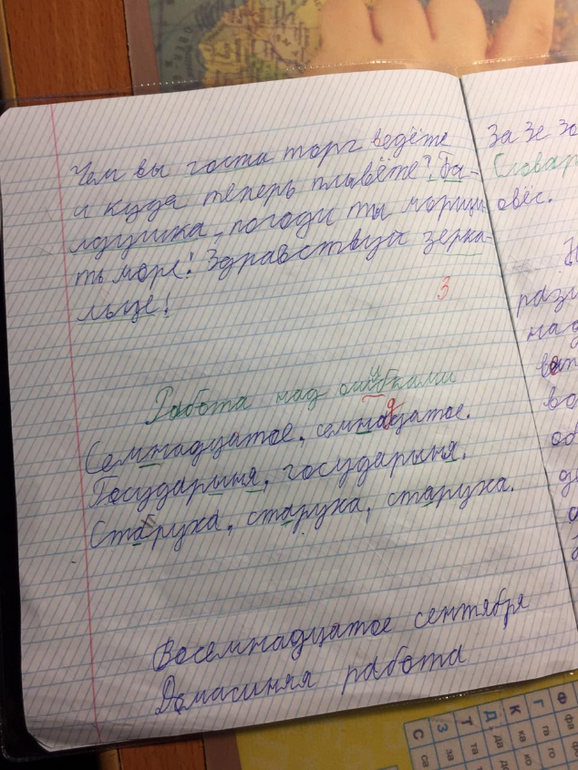 Чем вы гости торг ведёте
и куда теперь плывёте? Ба-
лдушка, погоди ты морщи-
ть море! Здравствуй зерка-
льце!
3
Работа над ошибками
Семнадцатое, семнадцатое.
Государыня, государыня.
Старуха, старуха, старуха.
Восемнадцатое сентября
Домашняя работа
За зе за
Словар
овёс.
разм
над
во
об
С са
З за
Т та
Д да
К ка ко
Г га го
Ф фа